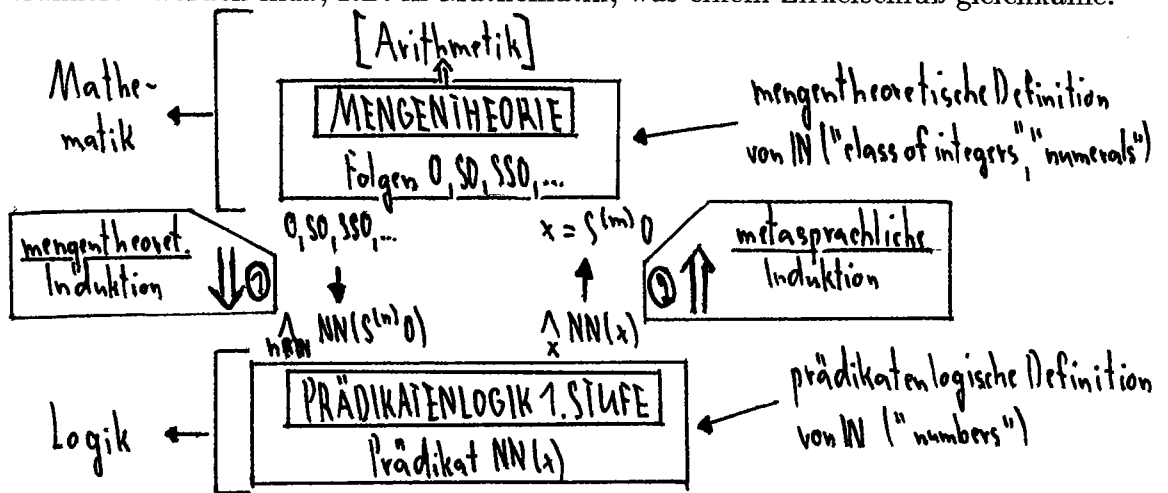 [Arithmetik]
Mathe-
matik
MENGENTHEORIE
Folgen 0, S0, SS0, ...
mengentheoretische Definition
von IN ("class of integers", "numerals")
mengentheoret.
Induktion
1
0, S0, SS0, ...
x = S⁽ᵐ⁾0
2
metasprachliche
Induktion
NN(S⁽ⁿ⁾0)
⋀ NN(x)
x
Logik
PRÄDIKATENLOGIK 1. STUFE
Prädikat NN(x)
prädikatenlogische Definition
von IN ("numbers")